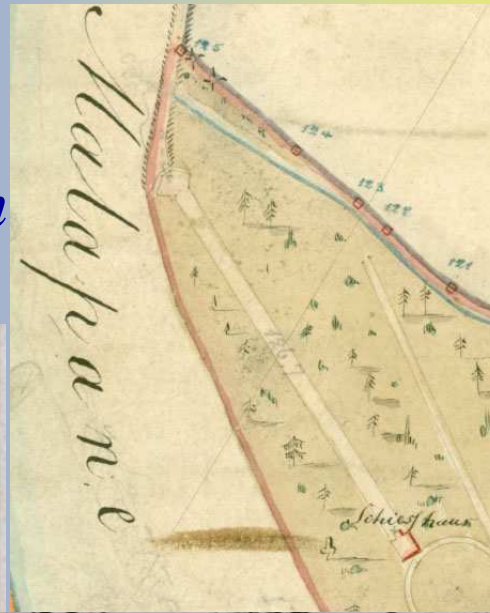 Malapane
125
124
123
122
121
Schiesshaus